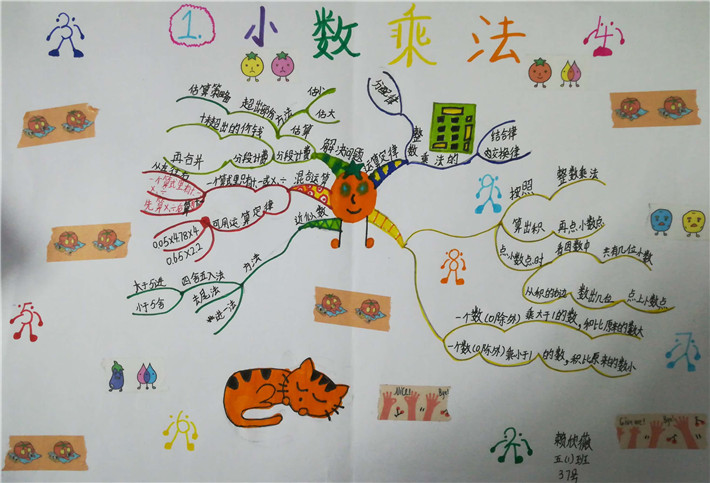 1.小数乘法
估算策略
超出部分方法
估小
估大
估算
计算超出的价钱
分段计费
分段计费
再合并
解决问题
混合运算
一个算式里只有
可用运算定律
0.05×4.78×4
0.65×2.2
近似数
方法
四舍五入法
大于5进
小于5舍
去尾法
进一法
运算定律
整数乘法的
分配律
结合律
交换律
按照
整数乘法
算出积
再点小数点
点小数点时
看因数中
共有几位小数
从积的右边
数出几位
点上小数点
一个数(0除外)乘大于1的数,积比原来的数大
一个数(0除外)乘小于1的数,积比原来的数小
NICE!
Give me!
赖欣薇
五(1)班
37号